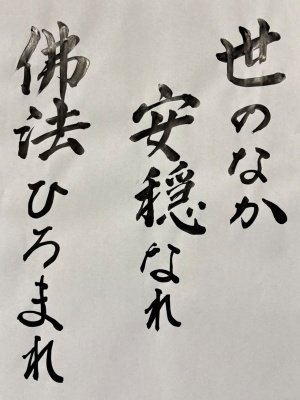 世のなか
安穏なれ
佛法ひろまれ